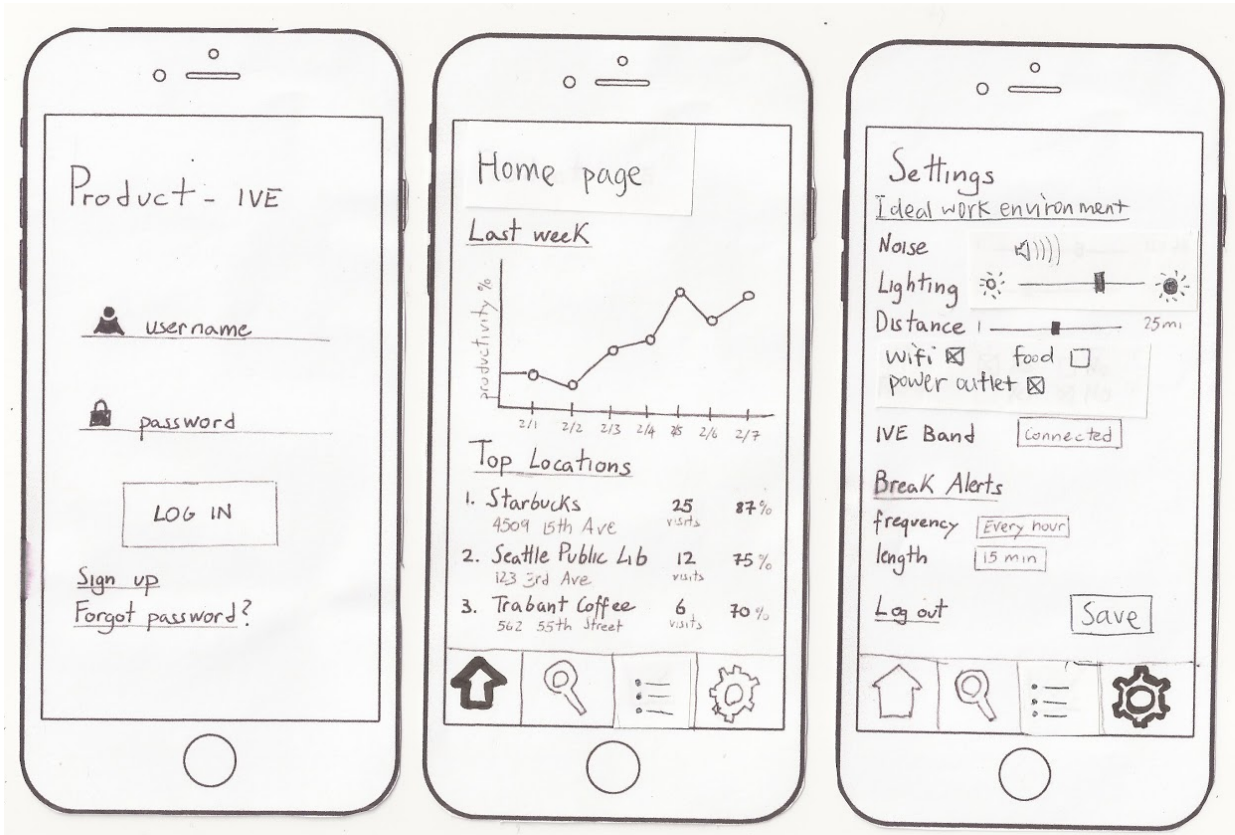 Product - IVE
username
password
LOG IN
Sign up
Forgot password?
Home page
Last week
productivity %
2/1 2/2 2/3 2/4 2/5 2/6 2/7
Top Locations
1. Starbucks 25 87%
4509 15th Ave visits
2. Seattle Public Lib 12 75%
123 3rd Ave visits
3. Trabant Coffee 6 70%
562 55th Street visits
Settings
Ideal work environment
Noise
Lighting
Distance 1 25mi
wifi food
power outlet
IVE Band Connected
Break Alerts
frequency Every hour
length 15 min
Log out Save